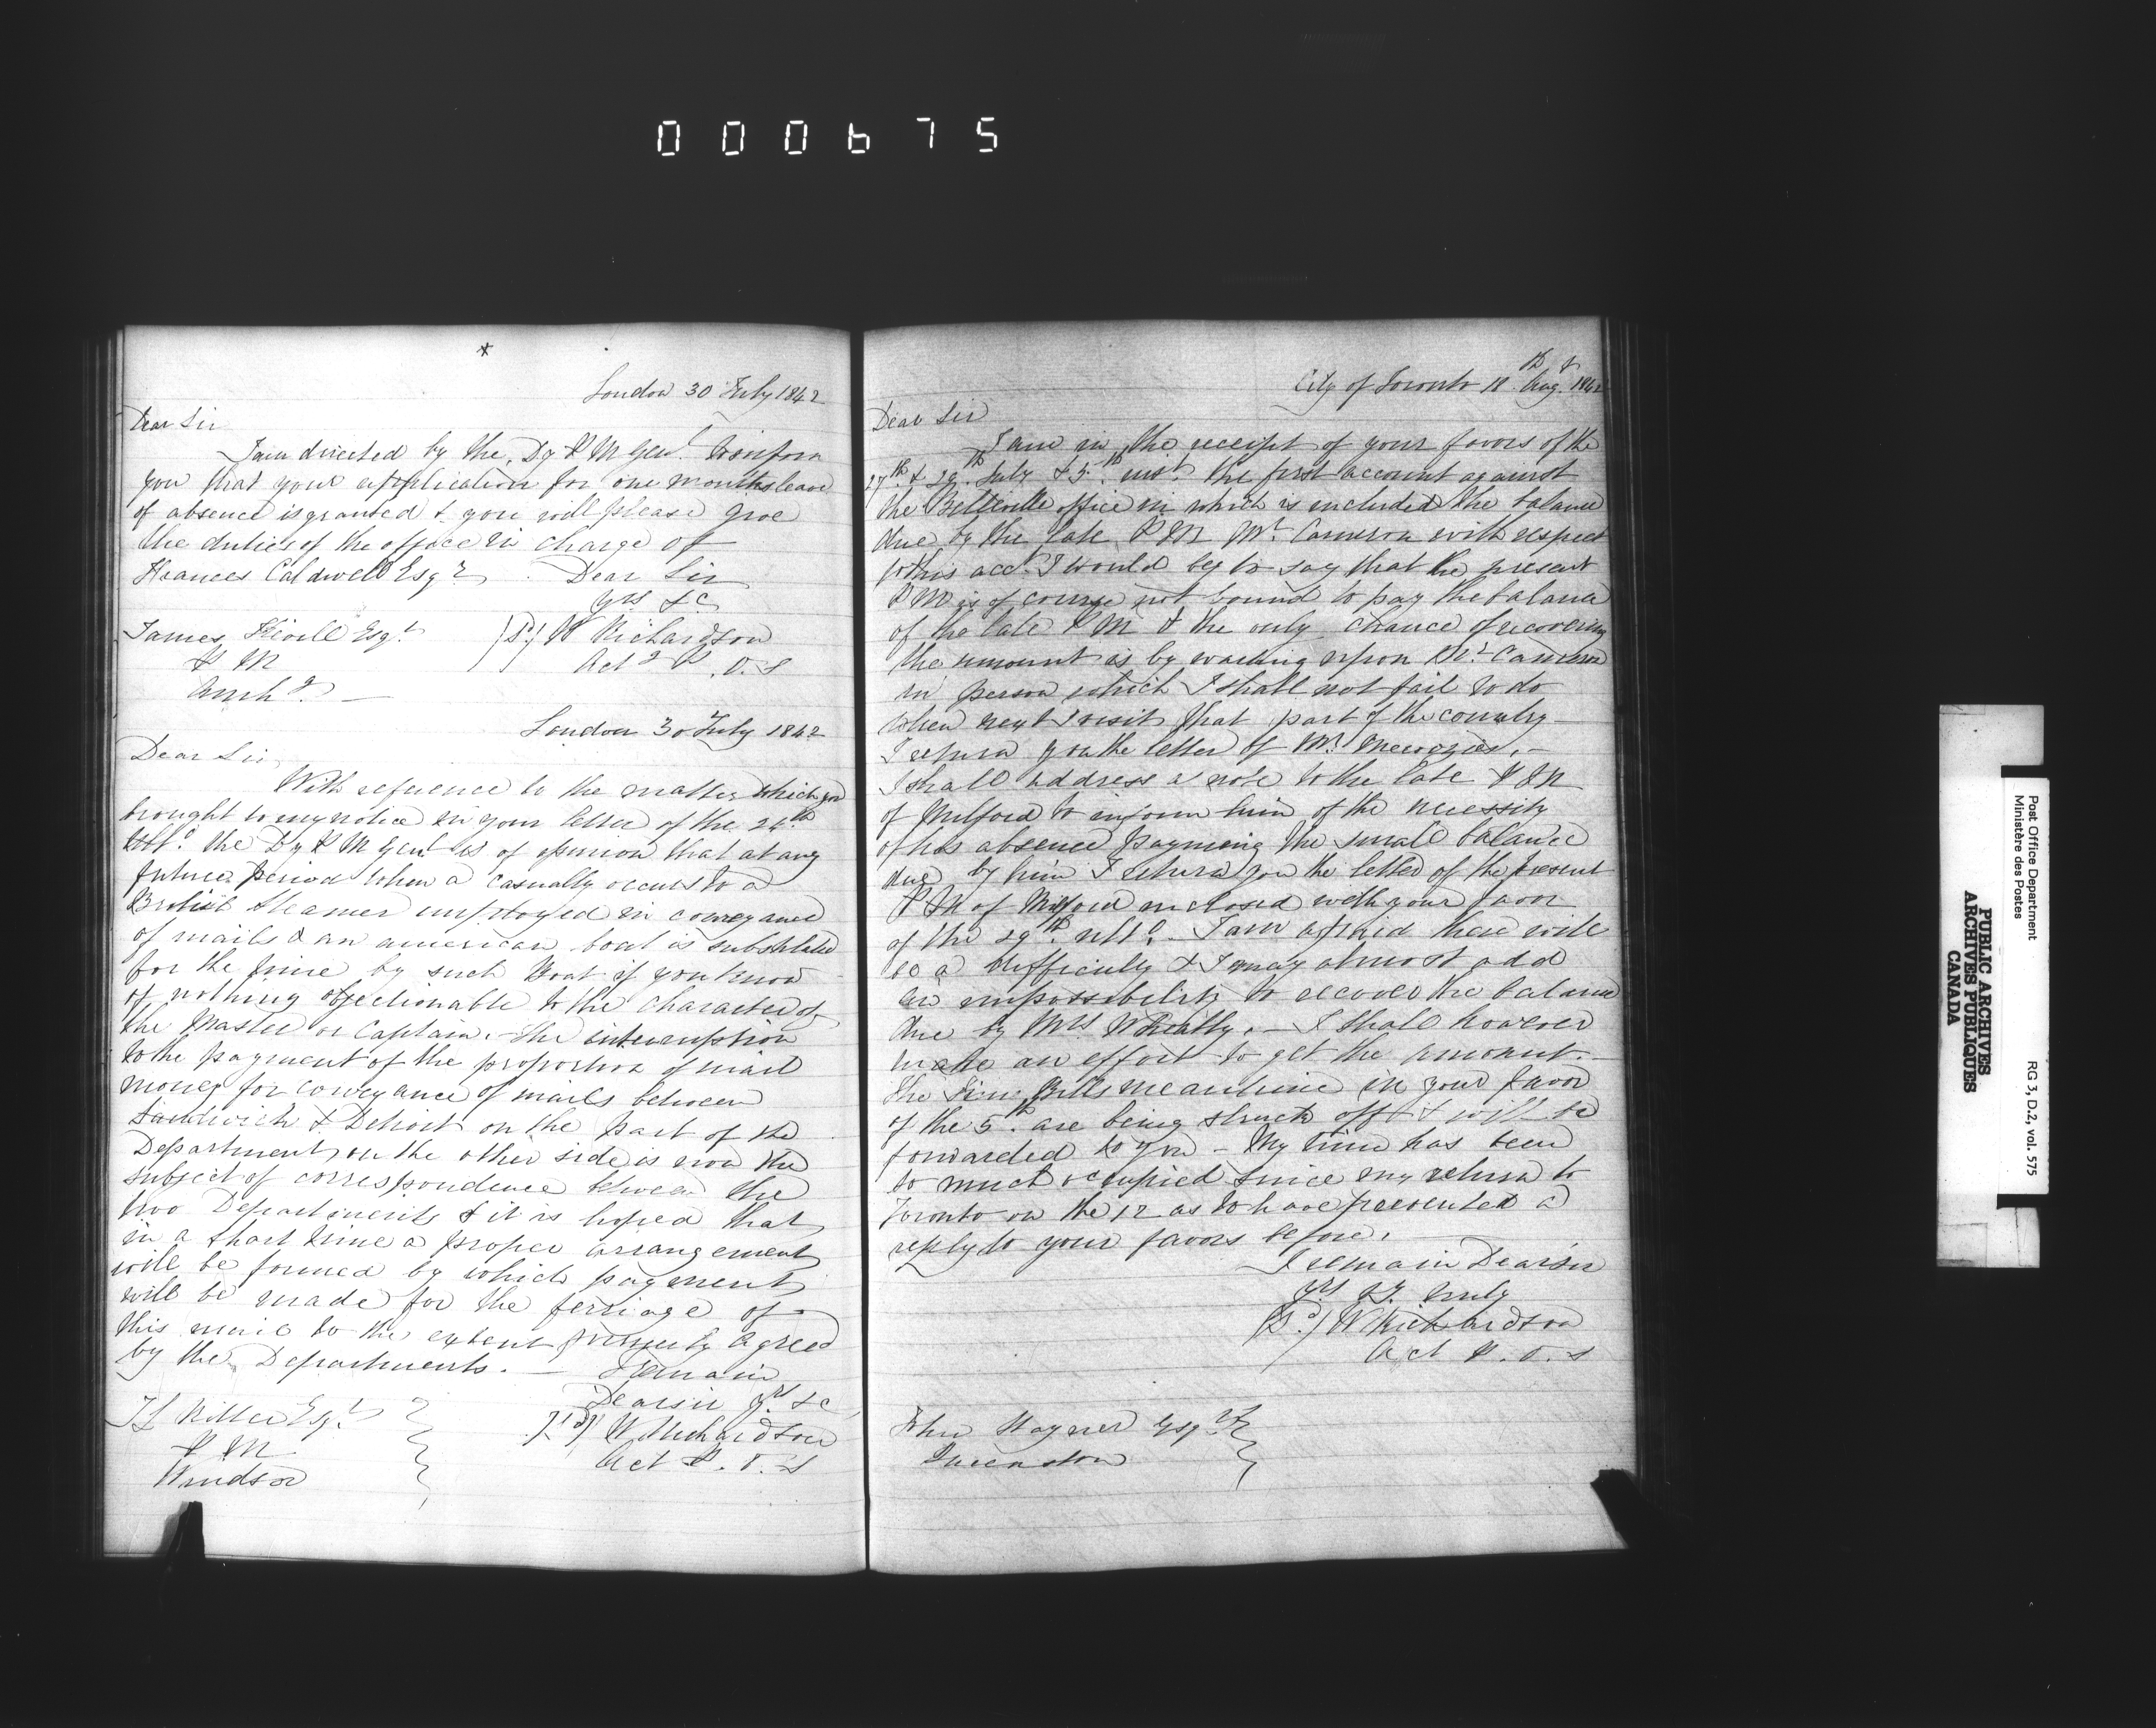 000675
London 30 July 1842
Dear Sir
I am directed by the Dy P M Genl. to inform
you that your application for one months leave
of absence is granted & you will please give
the duties of the office in charge of
Frances Caldwell Esqr. Dear Sir
yrs &c
James Kevill Esqr. (Sd) W Richardson
P M Actg P.O.S
Amhg.
London 30 July 1842
Dear Sir
With reference to the matter which you
brought to my notice in your letter of the 24th
Ulto. the Dy P M Genl is of opinion that at any
future period when a casualty occurs to a
British steamer employed in conveyance
of mails & an american boat is substituted
for the time by such Boat if you know
of nothing objectionable to the character of
the Master or Captain. The interruption
to the payment of the proportion of mail
money for conveyance of mails between
Sandwich & Detroit on the part of the
Department on the other side is now the
subject of correspondence between the
two Departments & it is hoped that
in a short time a proper arrangement
will be formed by which payment
will be made for the ferriage of
this mail to the extent agreed
by the Departments. — I remain
Dear sir yrs &c
Esqr. (Sd) W Richardson
P M Act P.O.S
Windsor
City of Toronto 18th Augt. 1842
Dear Sir
I am in the receipt of your favors of the
27th. & 29th July & 5th. inst. the first account against
the Belleville office in which is included the balance
due by the late P M Mr. Cameron with respect
to this acct. I would beg to say that the present
P M is of course not bound to pay the balance
of the late P M & the only chance of recovering
the amount is by waiting upon Mr. Cameron
in person which I shall not fail to do
when next I visit that part of the country —
I return you the letter of Mr. Menzies. —
I shall address a note to the late P M
of Milford to inform him of the necessity
of his absence paymeing the small balance
due by him I return you the letter of the present
P M of Milford enclosed with your favor
of the 29th. ulto. — I am afraid there will
be a difficulty & I may almost add
an impossibility to recover the balance
due by Mrs Wheatly. — I shall however
make an effort to get the amount. —
the Bills meantime in your favor
of the 5th. are being struck off & will be
forwarded to you — My time has been
to much occupied since my return to
Toronto on the 12 as to have prevented a
reply to your favors before.
I remain Dear sir
yrs truly
(Sd.) W Richardson
Act P.O.S
John Wayner Esqr.
Queenston
Post Office Department
Ministère des Postes
RG 3, D.2, vol. 575
PUBLIC ARCHIVES
ARCHIVES PUBLIQUES
CANADA